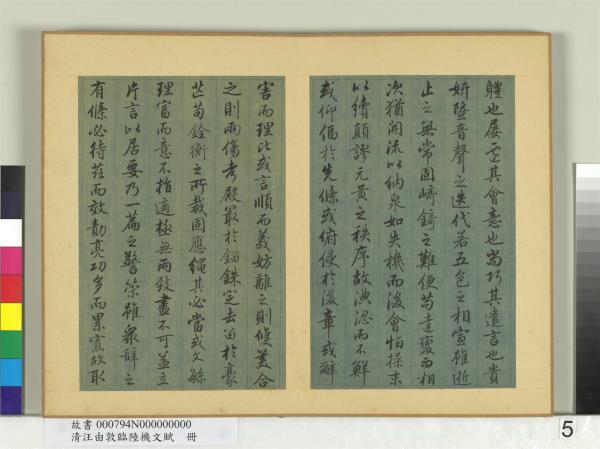 軆也屢遷其會意也尚巧其遣言也貴
妍暨音聲之迭代若五色之相宣雖逝
止之無常固崎錡之難便苟達變而相
次猶開流以納泉如失機而後會恒操末
以續顛謬元黃之秩序故淟涊而不鮮
或仰偪於先條或俯侵於後章或辭
害而理比或言順而義妨離之則雙美合
之則兩傷考殿最於錙銖定去留於豪
芒苟銓衡之所裁固應繩其必當或文繇
理富而意不指適極無兩致盡不可益立
片言以居要乃一篇之警策雖衆辭之
有條必待茲而效勣亮功多而累寡故取
故書 000794N000000000
清汪由敦臨陸機文賦 冊
5